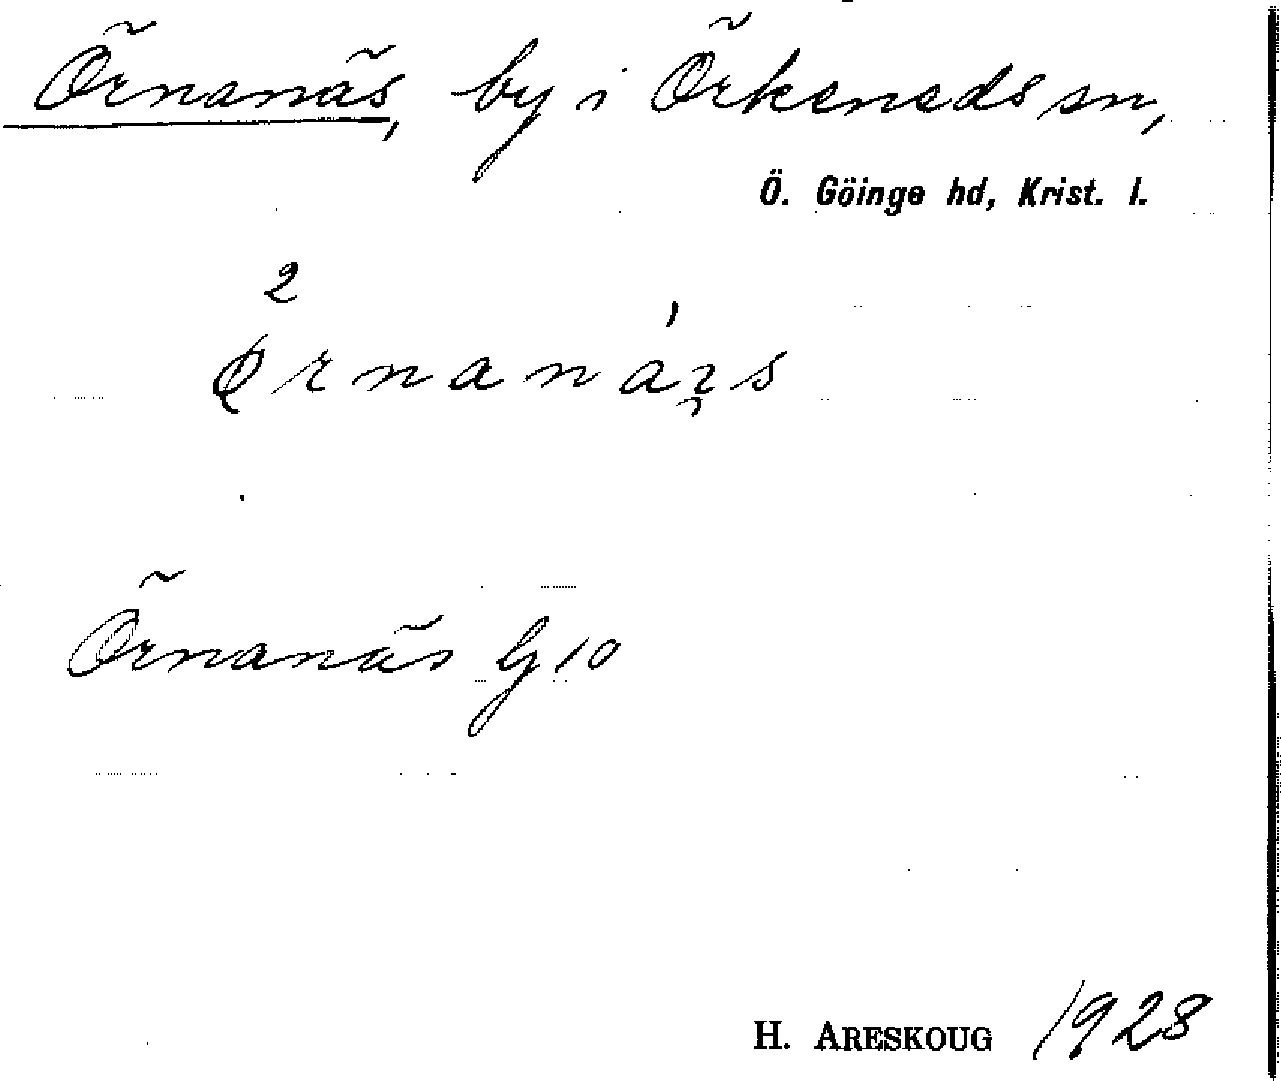 Örnanäs, by i Örkeneds sn,
Ö. Göinge hd, Krist. l.
2
Örnanäs G 10
H. ARESKOUG 1928